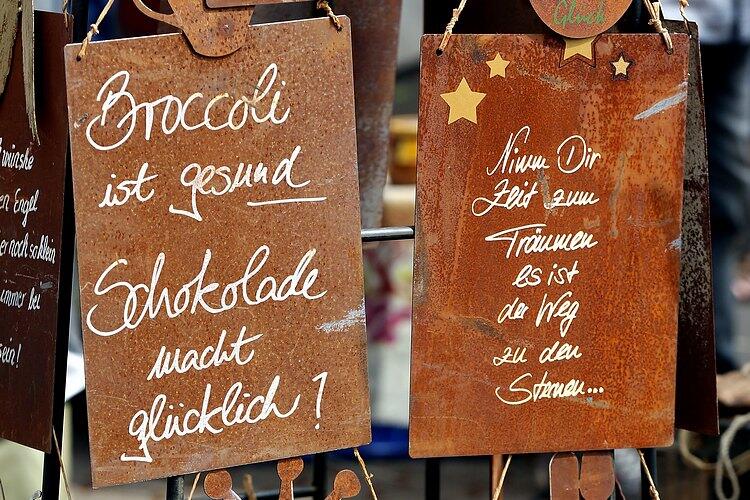 Glück
wünsche
en Engel
er noch so klein
immer bei
sein!
Broccoli
ist gesund
Schokolade
macht
glücklich!
Nimm Dir
Zeit zum
Träumen
es ist
der Weg
zu den
Sternen...